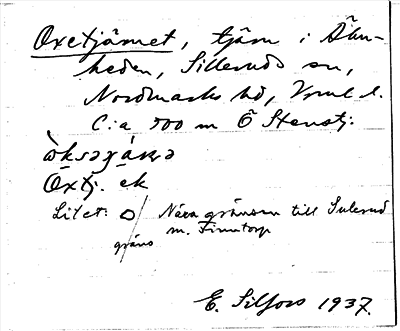 Oxetjärnet, tjärn i Åbn-
heden, Silleruds sn,
Nordmarks hd, Vrml. l.
C:a 700 m Ö Stenstj.
Öxtj. ek
Litet. Nära gränsen till Sulerud
gräns m. Finntorp
E. Silfors 1937.